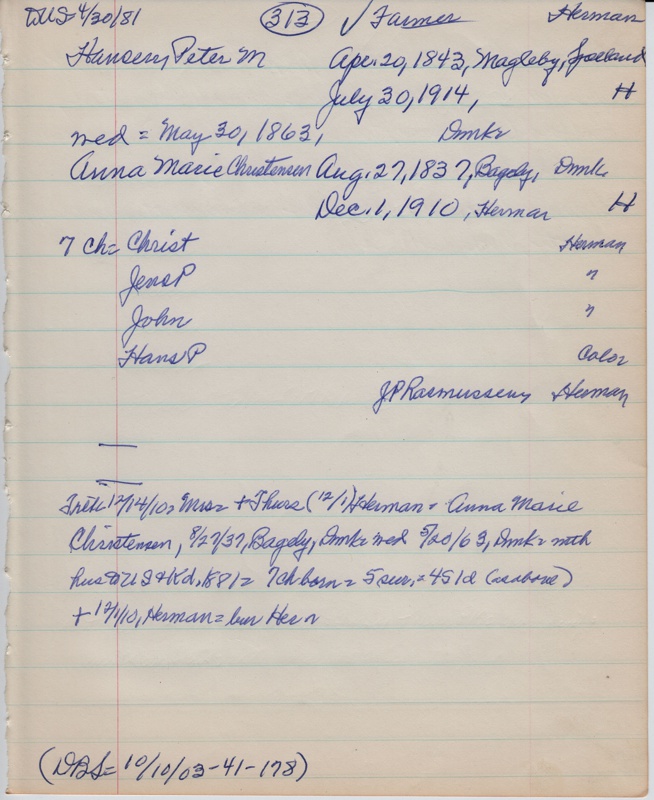 DUS=4/30/81 313 ✓Farmer Herman
Hansen, Peter M Apr. 20, 1843, Magleby, Sjaeland
July 30, 1914, H
wed = May 30, 1863, Dmk=
Anna Marie Christensen Aug. 27, 1837, Bagely, Dmk.
Dec. 1, 1910, Herman H
7 ch= Christ Herman
Jens P "
John "
Hans P Color
J P Rasmussen, Herman
12/14/10= Mrs= + Thurs (12/1) Herman = Anna Marie
Christensen, 8/27/37, Bagely, Dmk= wed 5/ /63, Dmk= with
hus US + Kd. 1881= 7 ch born = 5 sur. = (as above)
+ 12/1/10, Herman = bur Her
(DBS= 10/10/03-41-178)